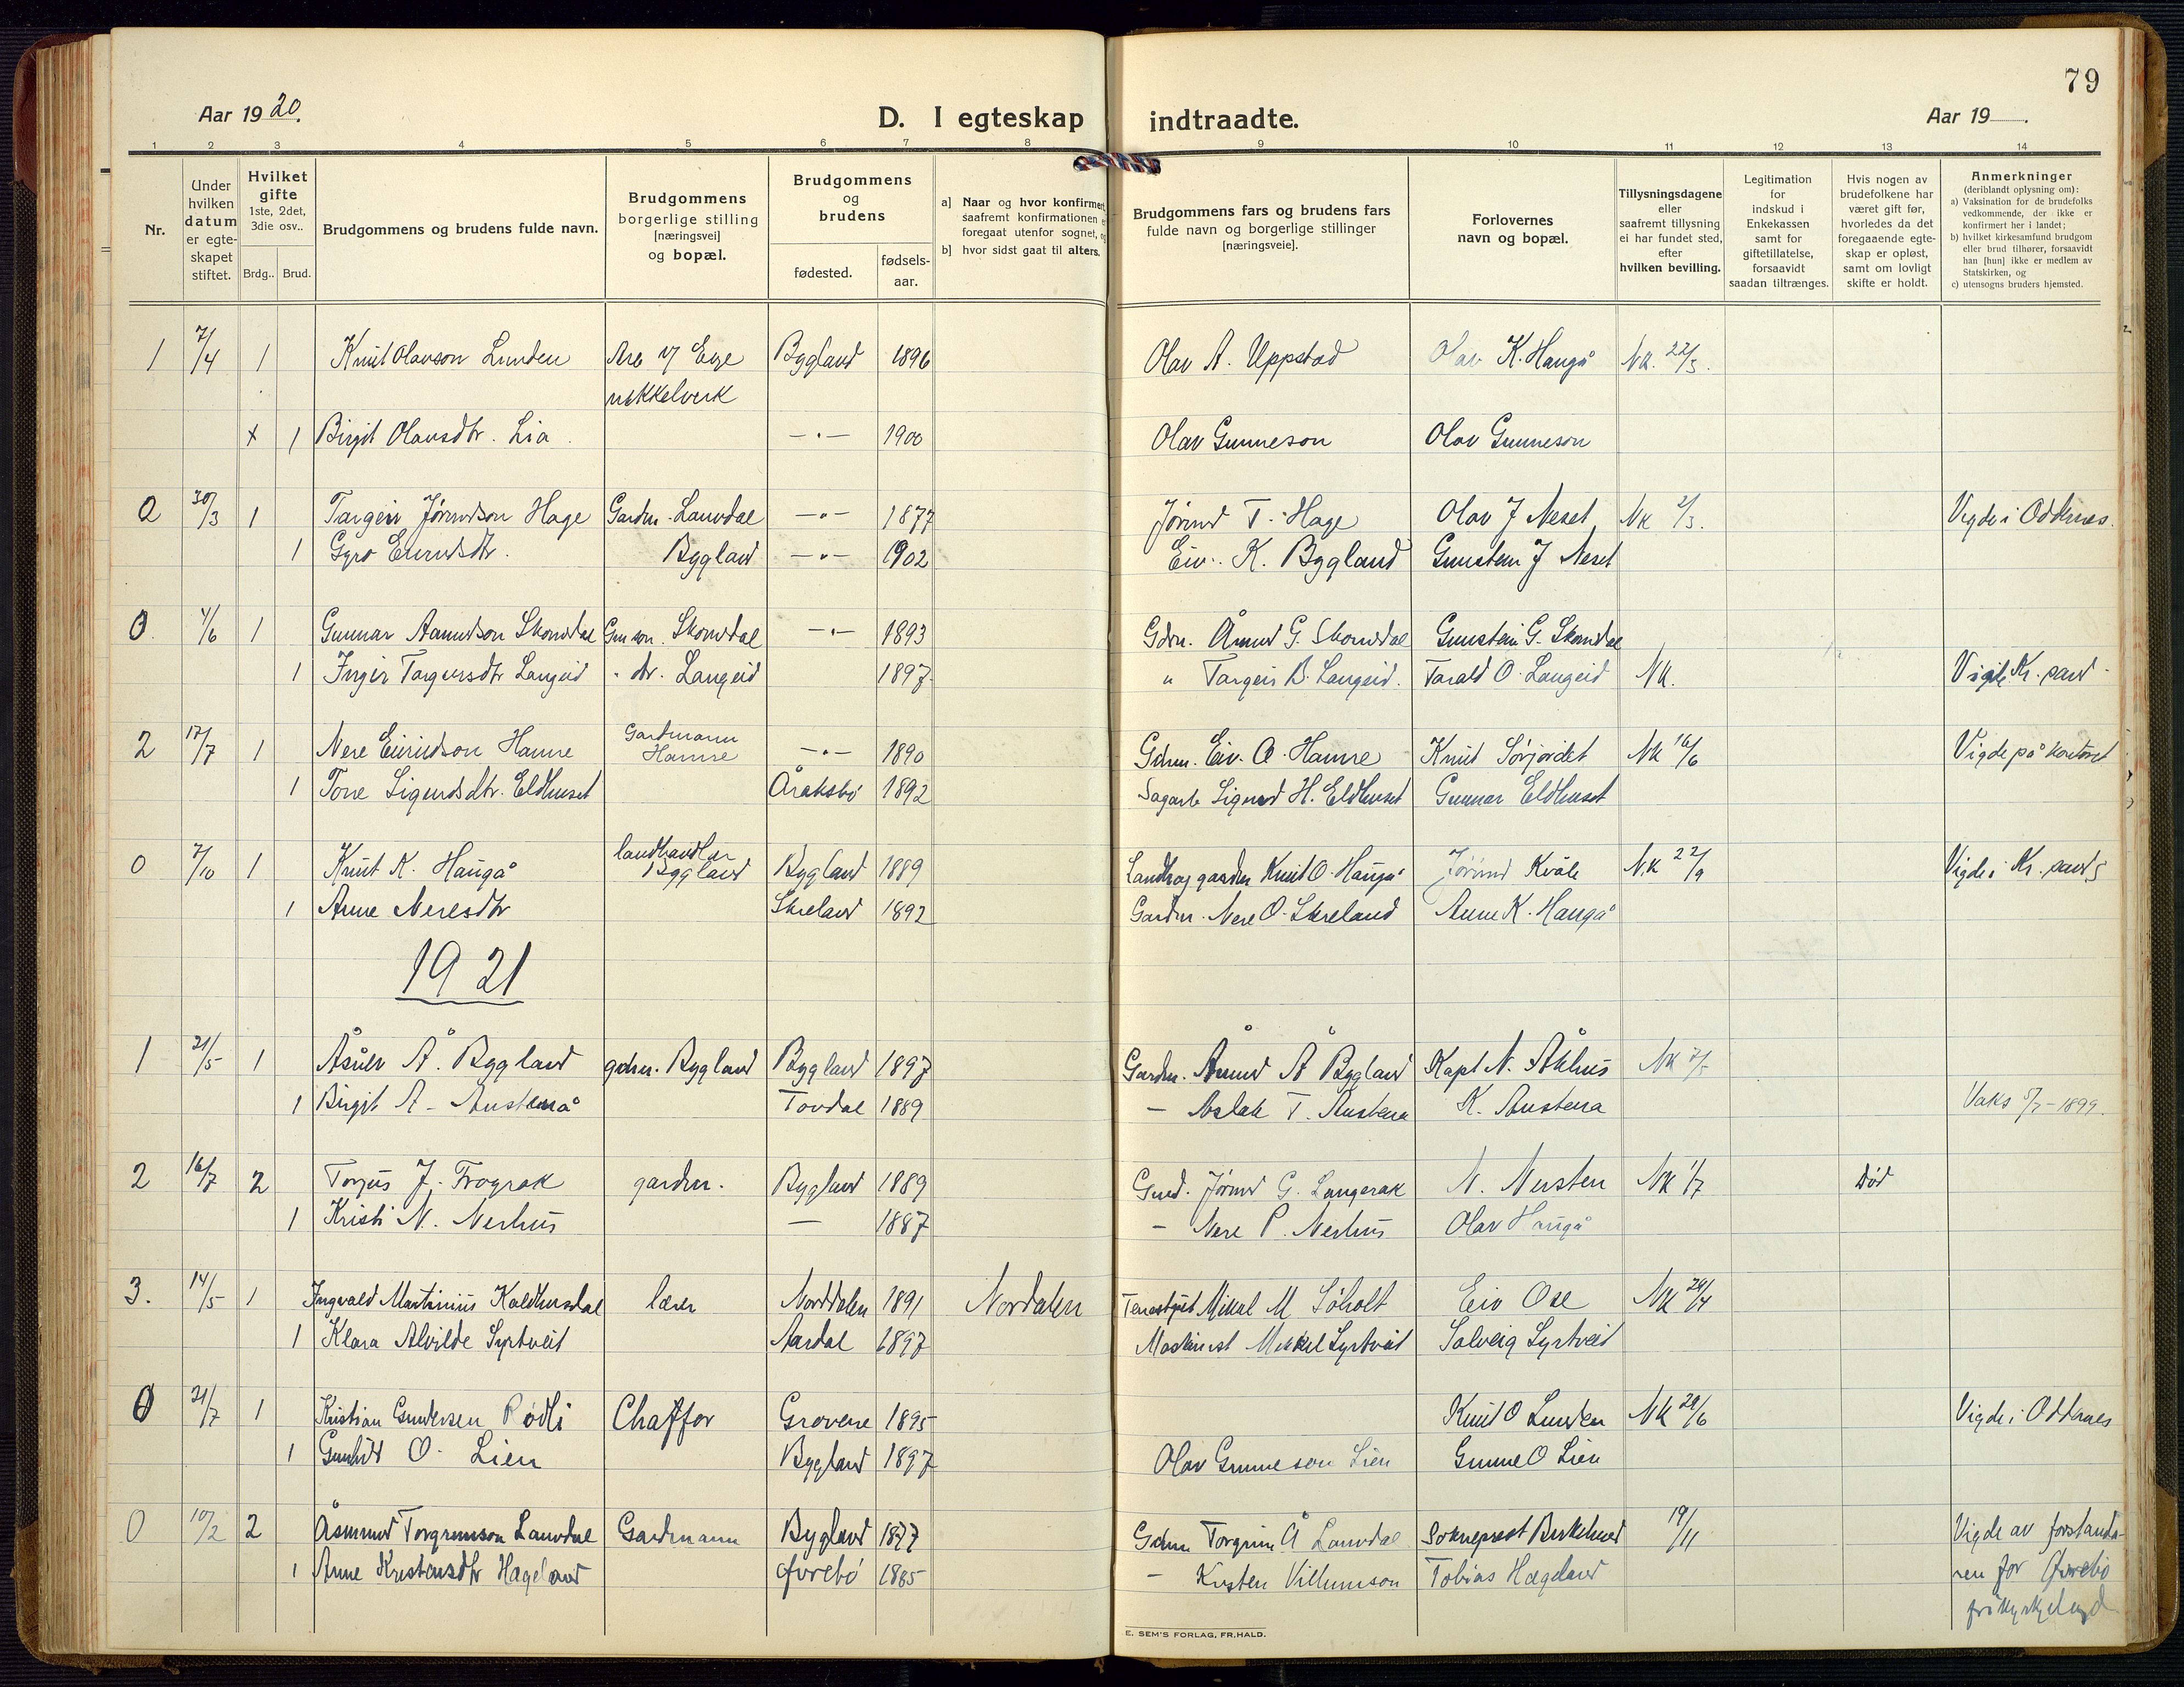 79
Aar 1920.
D. I egteskap indtraadte.
Aar 19 .
1 2 3 4 5 6 7 8 9 10 11 12 13 14
Nr.
Under hvilken datum er egteskapet stiftet.
Hvilket gifte 1ste, 2det, 3die osv..
Brdg.. Brud.
Brudgommens og brudens fulde navn.
Brudgommens borgerlige stilling [næringsvei] og bopæl.
Brudgommens og brudens
fødested.
fødsels-aar.
a] Naar og hvor konfirmert, saafremt konfirmationen foregaat utenfor sognet,
b] hvor sidst gaat til alters.
Brudgommens fars og brudens fars fulde navn og borgerlige stillinger [næringsveie].
Forlovernes navn og bopæl.
Tillysningsdagene eller saafremt tillysning ei har fundet sted, efter hvilken bevilling.
Legitimation for indskud i Enkekassen samt for giftetillatelse, forsaavidt saadan tiltrænges.
Hvis nogen av brudefolkene har været gift før, hvorledes da det foregaaende egteskap er opløst, samt om lovligt skifte er holdt.
Anmerkninger (deriblandt oplysning om):
a) Vaksination for de brudefolks vedkommende, der ikke er konfirmert her i landet;
b) hvilket kirkesamfund brudgom eller brud tilhører, forsaavidt han [hun] ikke er medlem av Statskirken, og
c) utensogns bruders hjemsted.
1 7/4 1 Knut Olavson Lunden Arb v/ Evje Bygland 1896 Olav A. Uppstad Olav K. Haugå Nk. 22/3.
nikkelverk
x 1 Birgit Olavsdtr. Lia — " — 1900 Olav Gunneson Olav Gunneson
0 30/3 1 Targeir Jørundson Hage Gardm. Lauvdal — " — 1877 Jørund T. Hage Olav J Neset Nk 2/3. Vigde i Oddernes.
1 Gyro Eivindsdtr. Bygland — " — 1902 Eiv. K. Bygland Gunstein J Neset
0 4/6 1 Gunnar Aamundson Skomedal Gm son. Skomedal — " — 1893 Gdm. Åmund G. Skomedal Gunstein G. Skomedal
1 Inger Targeirsdtr Langeid " dr. Langeid 1897 " Targeir B. Langeid. Tarald O. Langeid Nk. Vigde Kr.sand
2 17/7 1 Nere Eivindson Hamre Gardmann Hamre — " — 1890 Gdm. Eiv. O. Hamre Knut Sørjordet Nk 16/6 Vigde på kontoret
1 Tone Sigurdsdtr. Eldhuset Åraksbø 1892 Sagarb Sigurd H. Eldhuset Gunnar Eldhuset
0 7/10 1 Knut K. Haugå landhandler Bygland Bygland 1889 Landh og gardm Knut O. Haugå Jørund Kvåle N.k 22/9 Vigde i Kr.sand S
1 Anne Neresdtr Skreland 1892 Gardm. Nere O. Skreland Anne K. Haugå
1921
1 21/5 1 Åsulv Å. Bygland gdm. Bygland Bygland 1897 Gardm. Åmund Å Bygland Kapt N. Åkhus Nk 7/5
1 Birgit A. Austenå Tovdal 1889 — Aslak T. Austenå K. Austenå Vaks 5/7 – 1899.
2 16/7 2 Torjus J. Frøyrak gardm. Bygland 1889 Gmd. Jørund G. Langerak N. Nersten Nk 1/7 Død
1 Kristi N. Nerhus — 1887 — Nere P. Nerhus Olav Haugå
3. 14/5 1 Ingvald Martinius Kaldhusdal lærer Norddalen 1891 Nordalen Mikal M Søholt Eiv Ose Nk 29/4
1 Klara Alvilde Syrtveit Aardal 1897 Maskinist Mikkel Syrtveit Solveig Syrtveit
0 21/7 1 Kristian Gundersen Rødli Chaffør Grovene 1895 Knut O Lunden Nk 28/6 Vigde i Oddernes
1 Gunhild O. Lien Bygland 1897 Olav Gunneson Lien Gunne O Lien
0 10/2 2 Åsmund Torgrimson Lauvdal Gardmann Bygland 1877 Gdm Torgrim Å Lauvdal Sokneprest Birkeland 19/11 Vigde av forstanda-
1 Anne Kristensdtr Hægeland Øvrebø 1885 — Kristen Villumson Tobias Hægeland ren for Øvrebø
frikyrkjelyd
E. SEM'S FORLAG, FR.HALD.